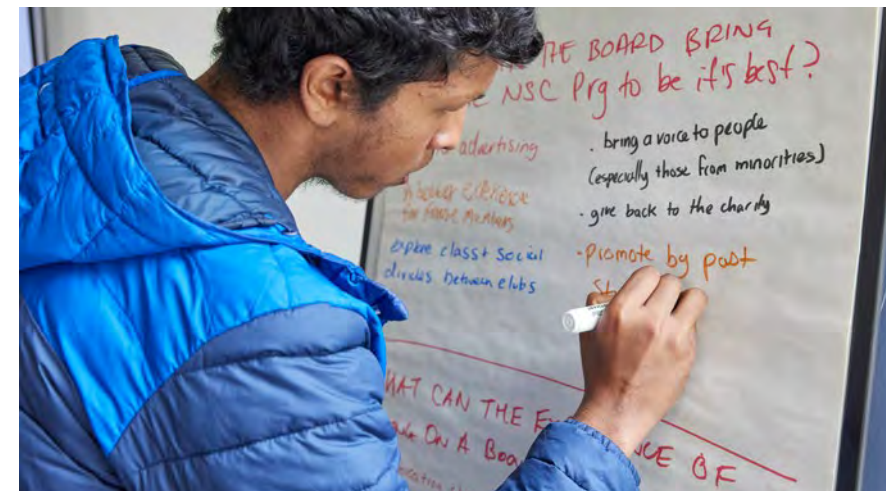 THE BOARD BRING
NSC Prg to be it's best?
advertising
for future members
explore class + social
divides between clubs
. bring a voice to people
(especially those from minorities)
. give back to the charity
. Promote by past
St
WHAT CAN THE
ON A BOA
NCE OF